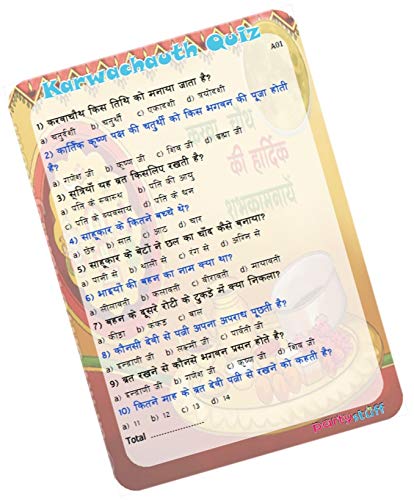 Karwachauth Quiz
A01
1) करवाचौथ किस तिथि को मनाया जाता है?
a) चतुर्दशी b) चतुर्थी c) एकादशी d) त्रयोदशी
2) कार्तिक कृष्ण पक्ष की चतुर्थी को किस भगवन की पूजा होती है?
a) गणेश जी b) कृष्ण जी c) शिव जी d) ब्रह्मा जी
3) स्त्रियाँ यह व्रत किसलिए रखती है?
a) पति के स्वास्थ b) पति की आयु
c) पति के व्यवसाय d) पति के धन
4) साहूकार के कितने बच्चे थे?
a) छेह b) सात c) आठ d) चार
5) साहूकार के बेटों ने छल का चाँद कैसे बनाया?
a) पानी से b) थाली से c) रंग से d) अग्नि से
6) भाइयों की बहन का नाम क्या था?
a) लीलावती b) कलावती c) वीरावती d) मायावती
7) बहन के दूसरे रोटी के टुकड़े में क्या निकला?
a) कीड़ा b) कंकड़ c) बाल
8) कौनसी देवी से पत्नी अपना अपराध पूछती है?
a) इन्द्राणी जी b) लक्ष्मी जी c) पार्वती जी
9) व्रत रखने से कौनसे भगवन प्रसन होते है?
a) इन्द्राणी जी b) गणेश जी c) कृष्ण जी d) शिव जी
10) कितने माह के व्रत देवी पत्नी से रखने को कहती है?
a) 11 b) 12 c) 13 d) 14
Total ................
करवा चौथ
की हार्दिक
शुभकामनायें
partystuff